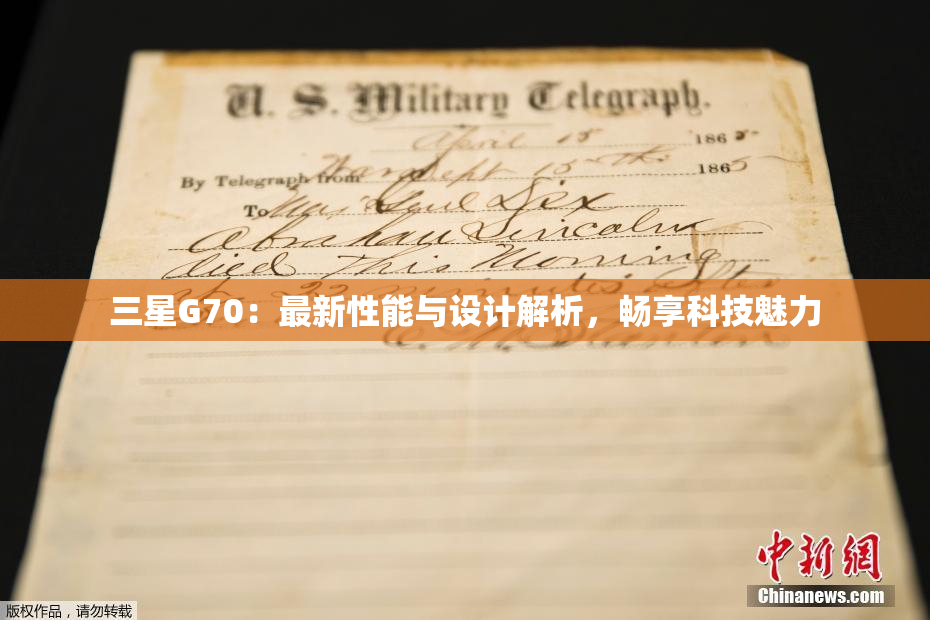 U. S. Military Telegraph.
April 15 1865
By Telegraph from War Dept 15th 1865
To Maj Genl Dix
Abraham Lincoln
died This Morning
22 minutes after
三星G70：最新性能与设计解析，畅享科技魅力
E. M. Stanton
中新網
Chinanews.com
版权作品，请勿转载